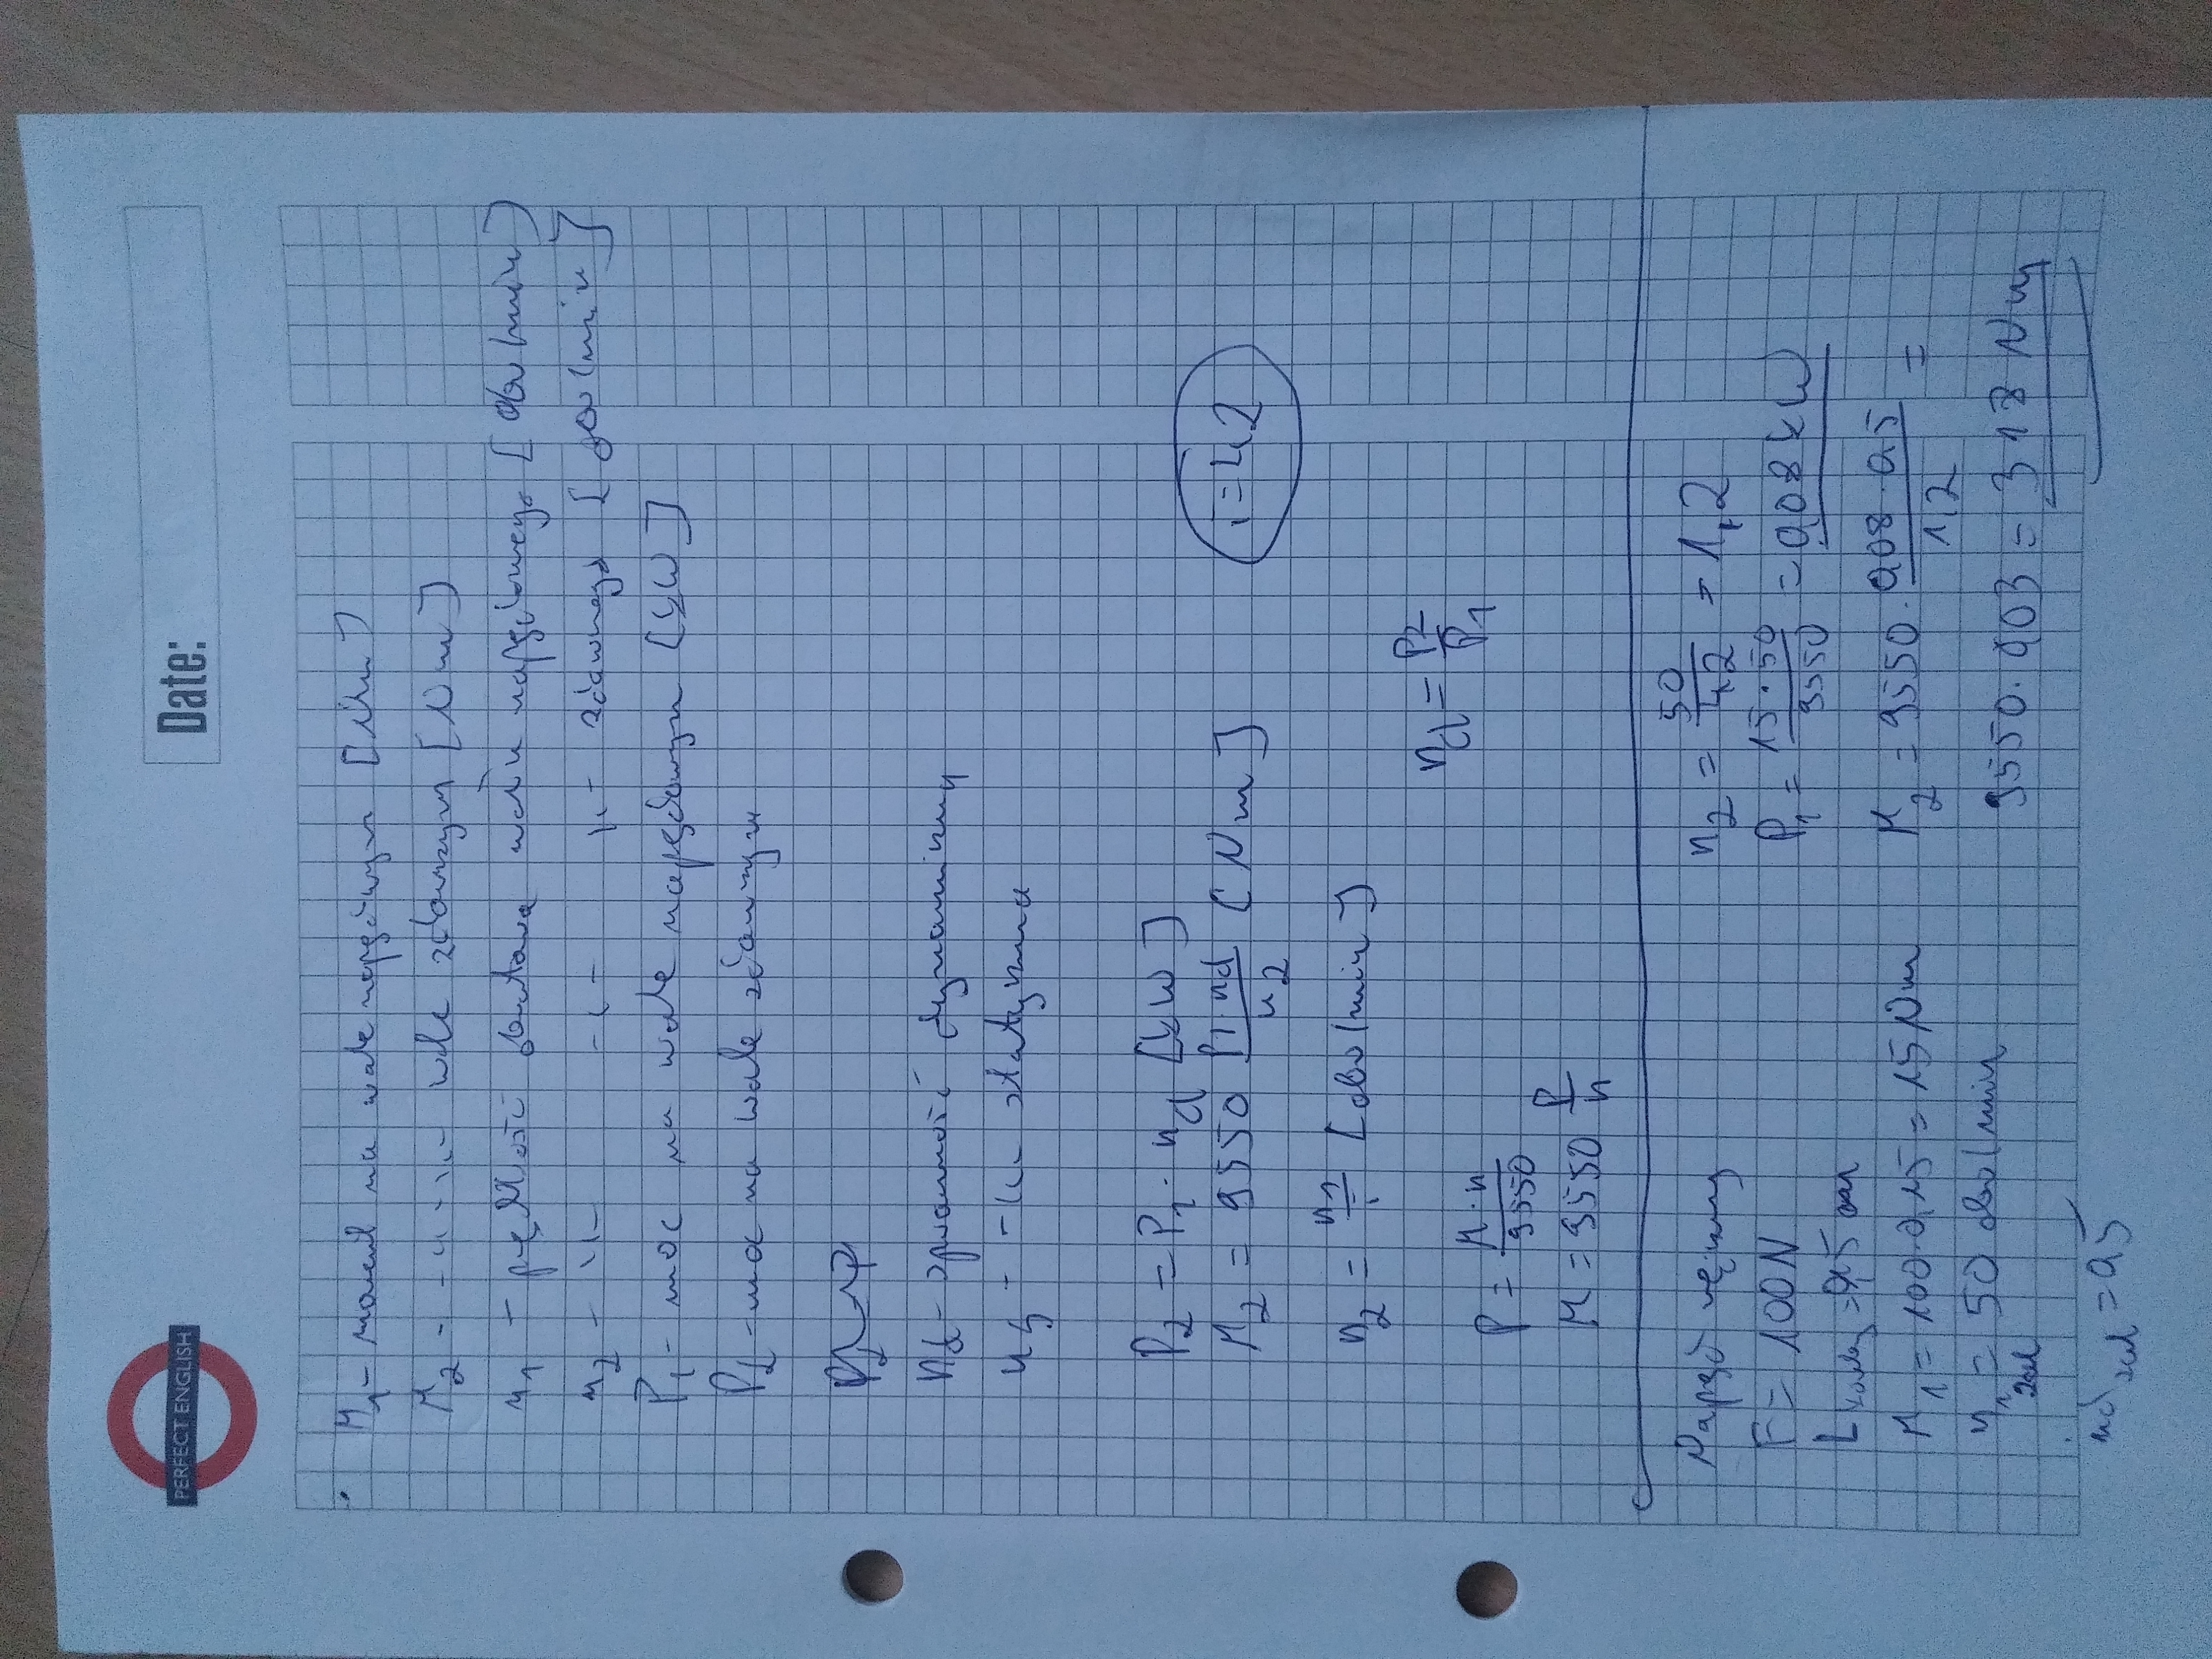 PERFECT ENGLISH
Date:
M1 - moment na wale napędowym [Nm]
M2 - -"- -"- wale zdawczym [Nm]
n1 - prędkość obrotowa wału napędowego [obr/min]
n2 - -"- -"- -"- zdawczego [obr/min]
P1 - moc na wale napędowym [kW]
P2 - moc na wale zdawczym
ηd - sprawność dynamiczny
ηs - -"- statyczna
P2 = P1 · ηd [kW]
M2 = 9550 P1·ηd/n2 [Nm]
i=42
n2 = n1/i [obr/min]
ηd = P2/P1
P = M·n/9550
M = 9550 P/n
Napęd ręczny
F = 100N
L korby = 0,15 m
M1 = 100·0,15 = 15 Nm
n1 zał = 50 obr/min
ηd zał = 0,5
n2 = 50/42 = 1,2
P1 = 15·50/9550 = 0,08 kW
M2 = 9550 · 0,08·0,5/1,2 =
9550·0,03 = 318 Nm